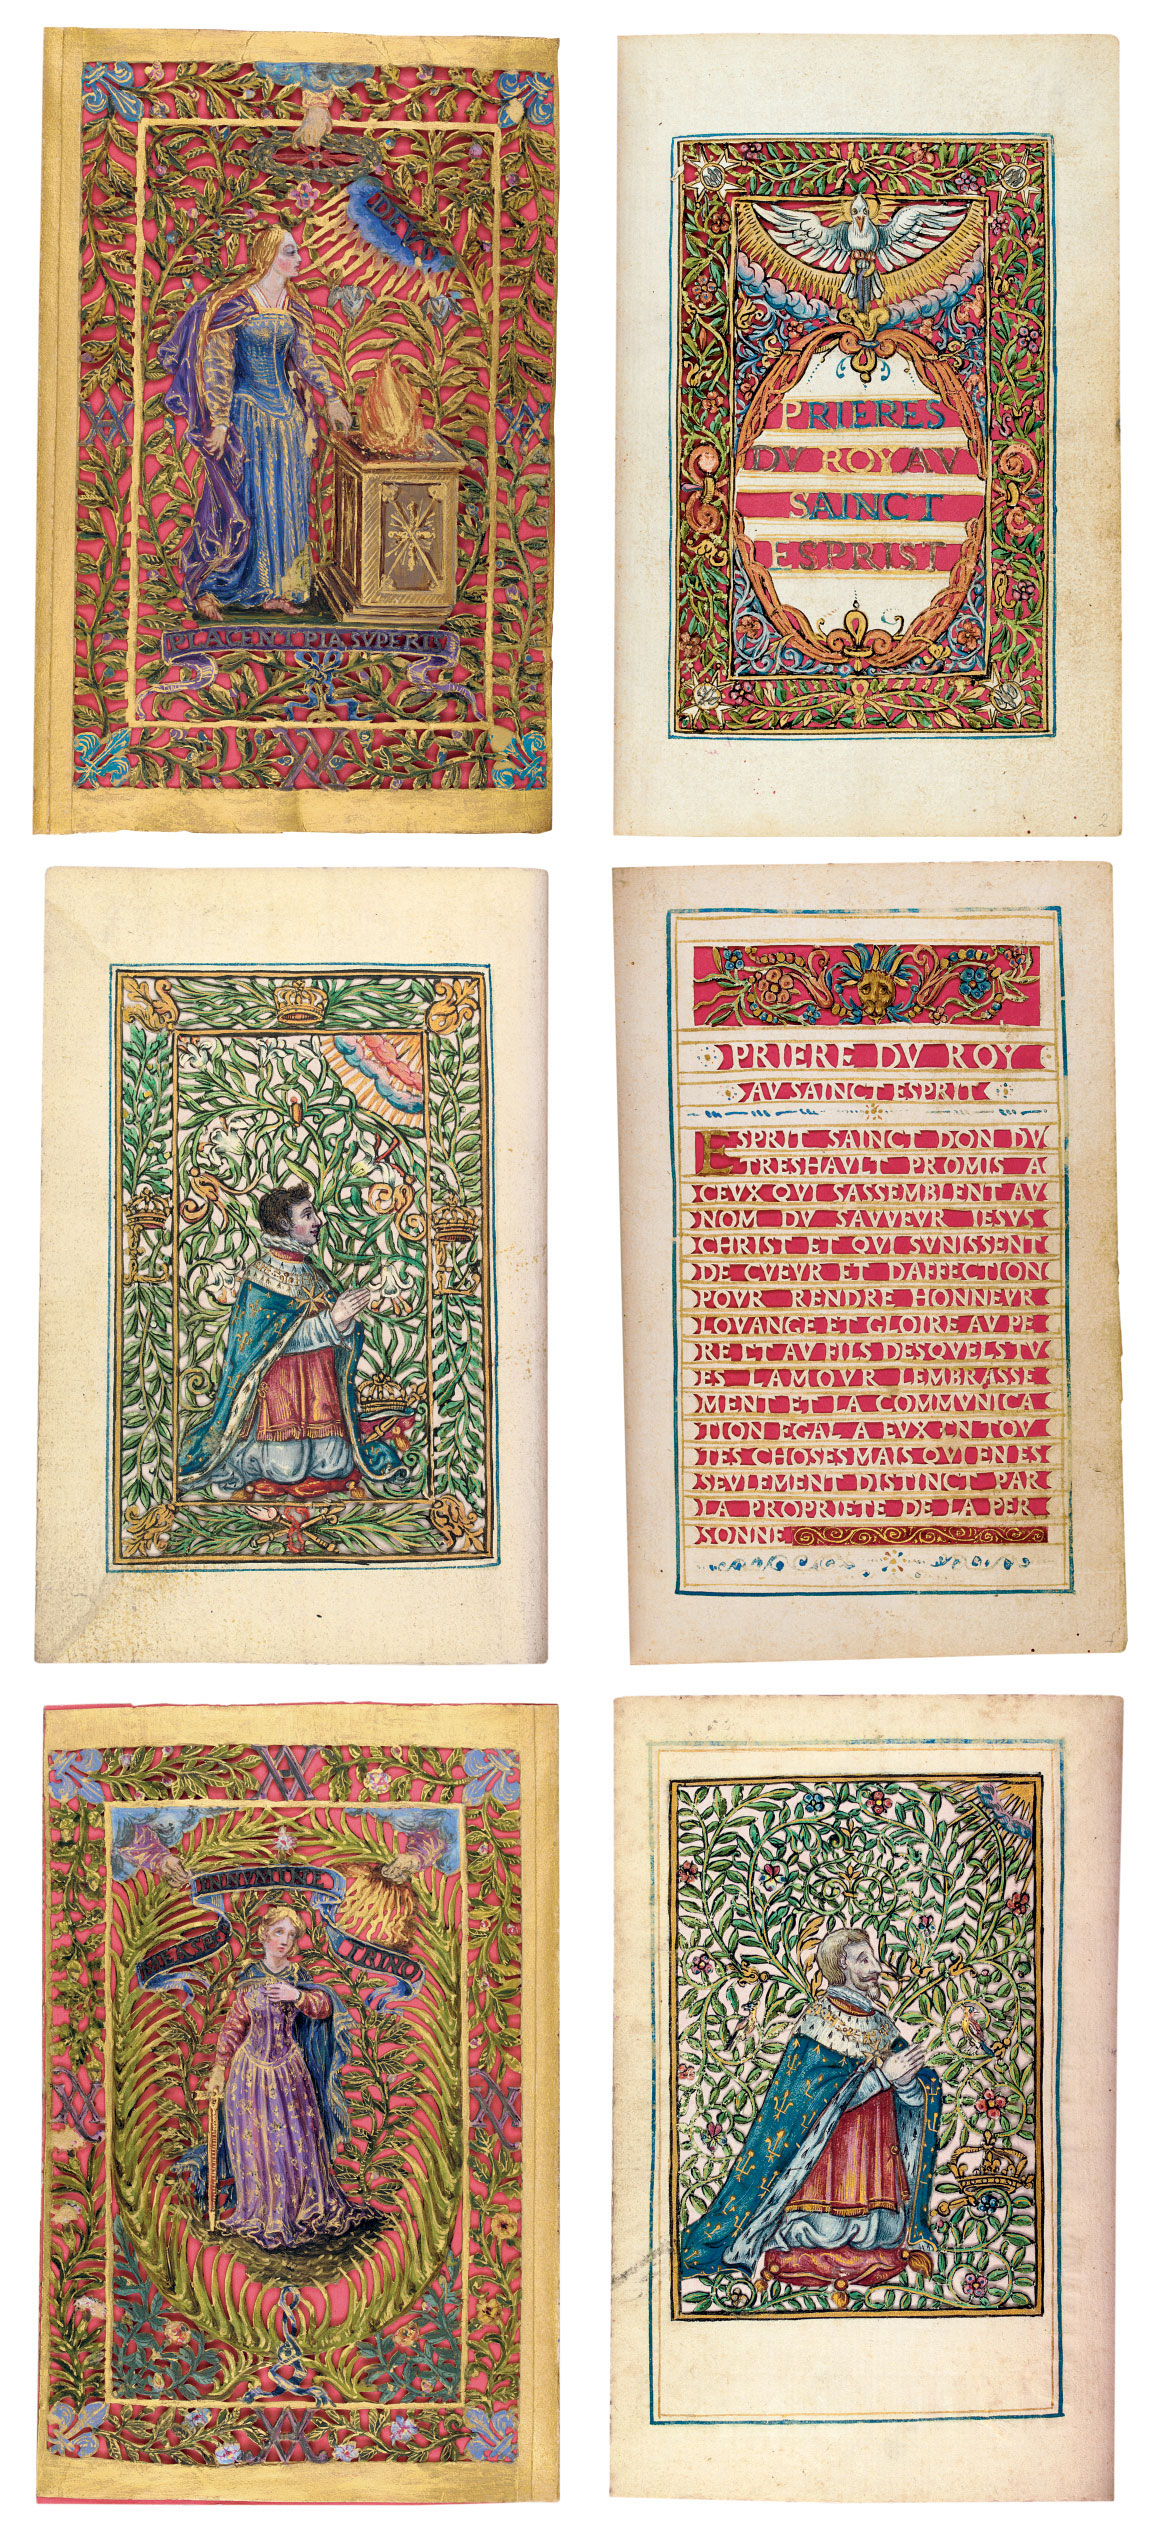 DEVS
PLACENT PIA SVPERIS
PRIERES
DV ROY AV
SAINCT
ESPRIST
2
PRIERE DV ROY
AV SAINCT ESPRIT
ESPRIT SAINCT DON DV
TRESHAVLT PROMIS A
CEVX QVI SASSEMBLENT AV
NOM DV SAVVEVR IESVS
CHRIST ET QVI SVNISSENT
DE CVEVR ET DAFFECTION
POVR RENDRE HONNEVR
LOVANGE ET GLOIRE AV PE
RE ET AV FILS DESQVELS TV
ES LAMOVR LEMBRASSE
MENT ET LA COMMVNICA
TION EGAL A EVX EN TOV
TES CHOSES MAIS QVI EN ES
SEVLEMENT DISTINCT PAR
LA PROPRIETE DE LA PER
SONNE
TRINO